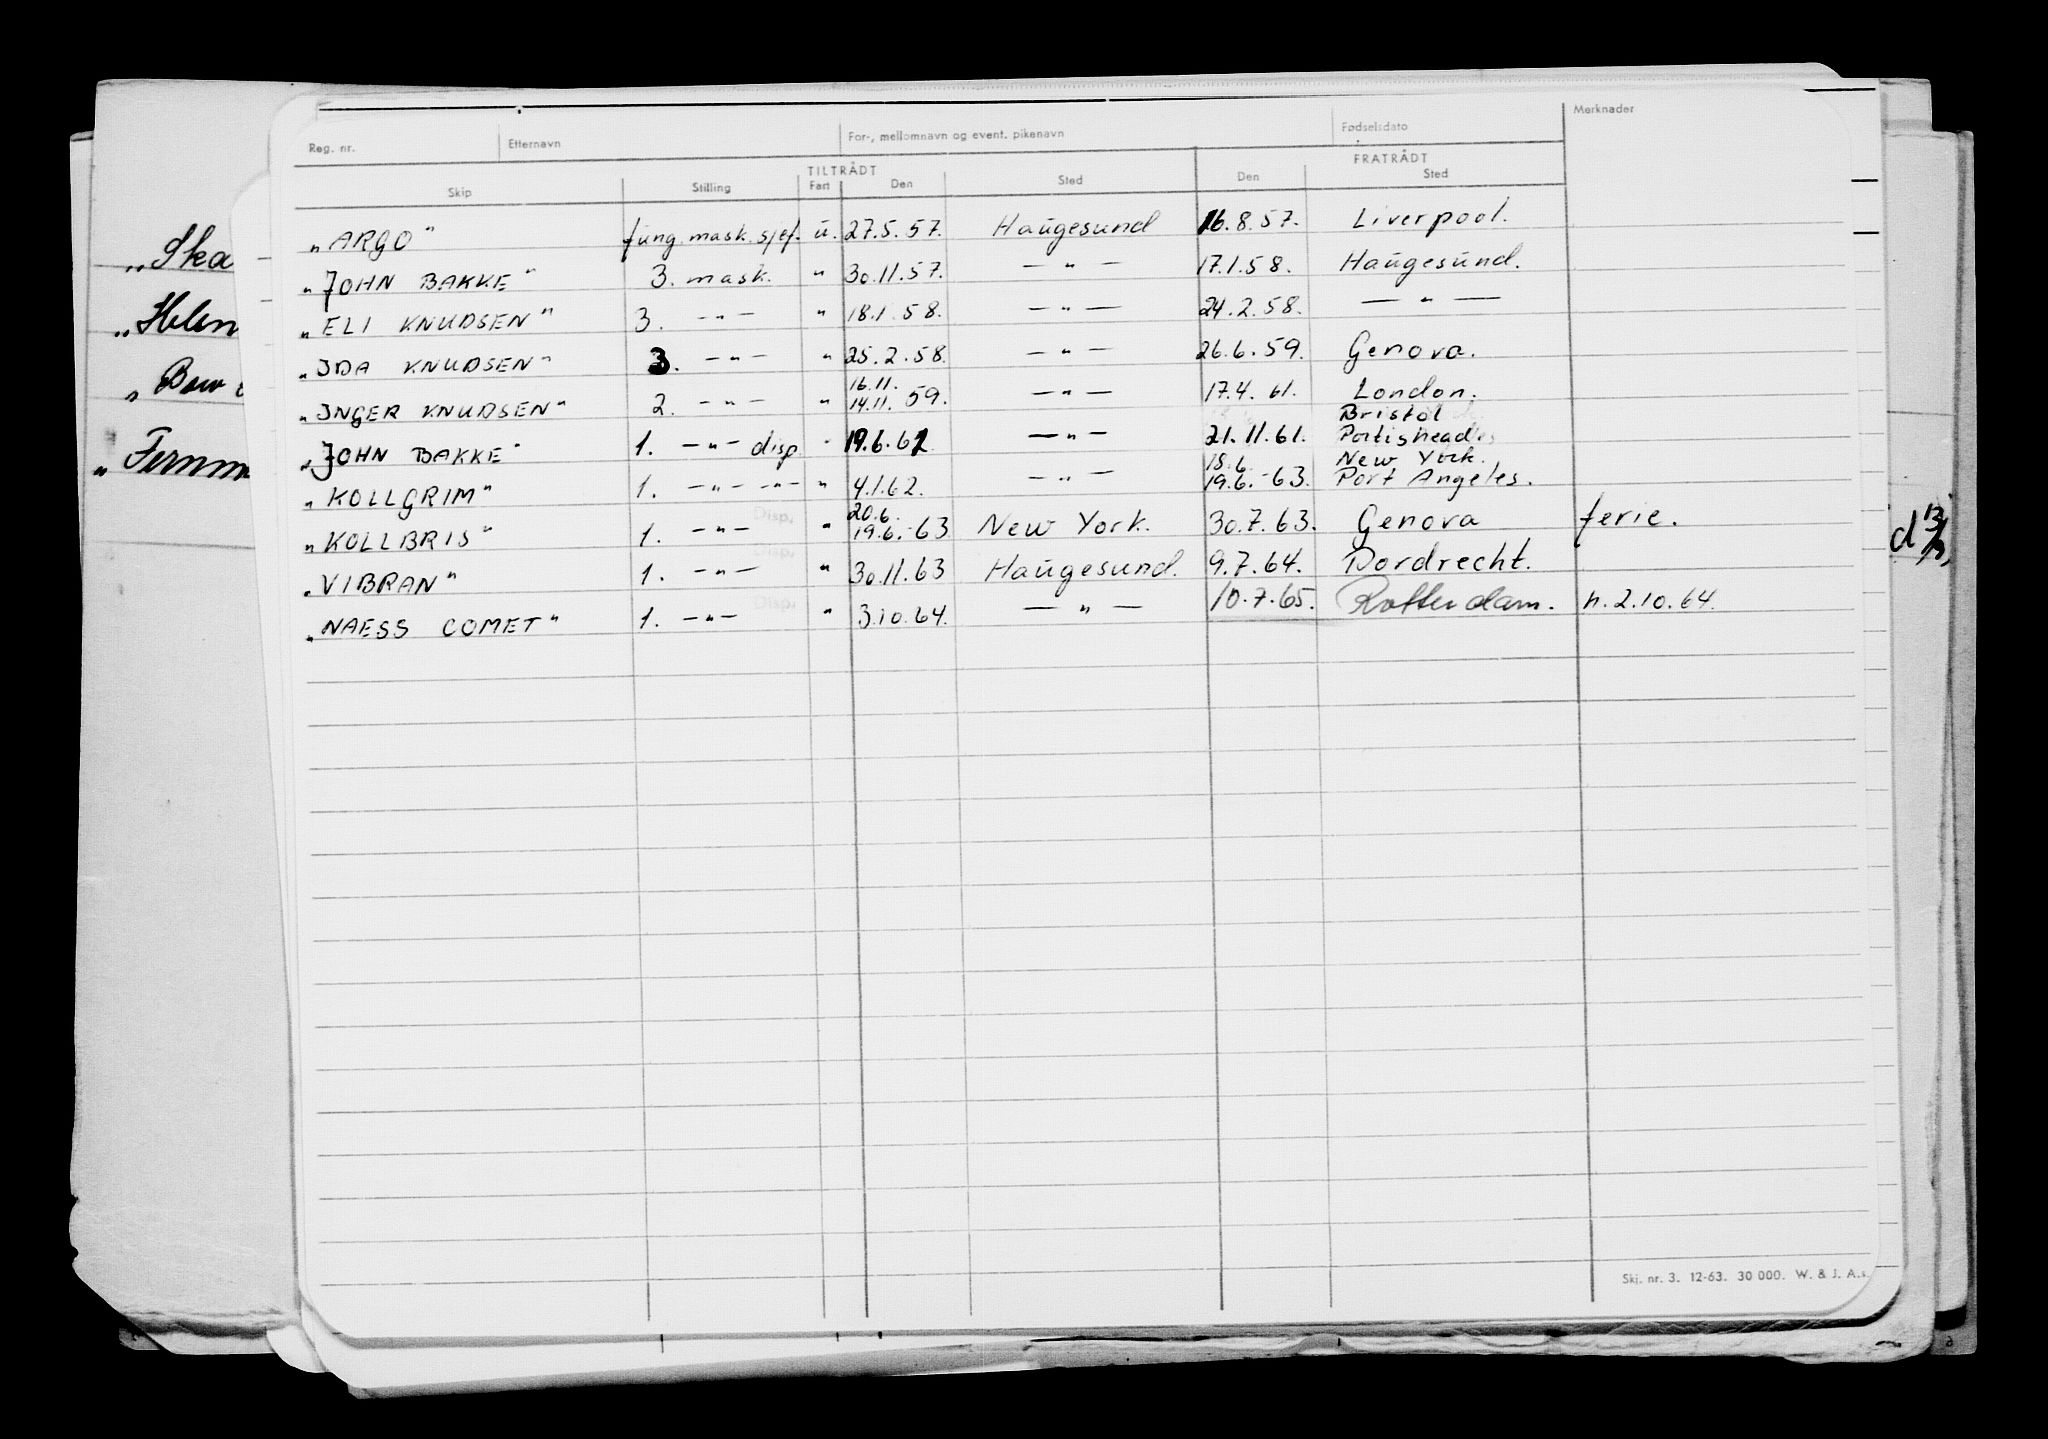 Merknader
Reg. nr. Etternavn For-, mellomnavn og event. pikenavn Fødselsdato
TILTRÅDT FRATRÅDT
Skip Stilling Fart Den Sted Den Sted
„ARGO" fung. mask. sjef. u. 27.5.57. Haugesund 16.8.57. Liverpool.
„JOHN BAKKE" 3. mask. " 30.11.57. — " — 17.1.58. Haugesund.
„ELI KNUDSEN" 3. — " — " 18.1.58. — " — 24.2.58. — " —
„IDA KNUDSEN" 3. — " — " 25.2.58. — " — 26.6.59. Genova.
„INGER KNUDSEN" 2. — " — " 16.11. 14.11. 59. — " — 17.4.61. London.
Bristol
„JOHN BAKKE" 1. — " — disp " 19.6.61 — " — 21.11.61. Portishead
18.6. New York.
„KOLLGRIM" 1. — " — — " — " 4.1.62. — " — 19.6.-63. Port Angeles.
Disp. 20.6.
„KOLLBRIS" 1. — " — " 19.6.-63 New York. 30.7.63. Genova ferie.
Disp.
„VIBRAN" 1. — " — " 30.11.63 Haugesund. 9.7.64. Dordrecht.
Disp.
„NAESS COMET" 1. — " — " 3.10.64. — " — 10.7.65. Rotterdam. h. 2.10.64.
„Ska
„Helen
„Bow
„Fernm
Skj. nr. 3. 12-63. 30 000. W. & J. A.s.